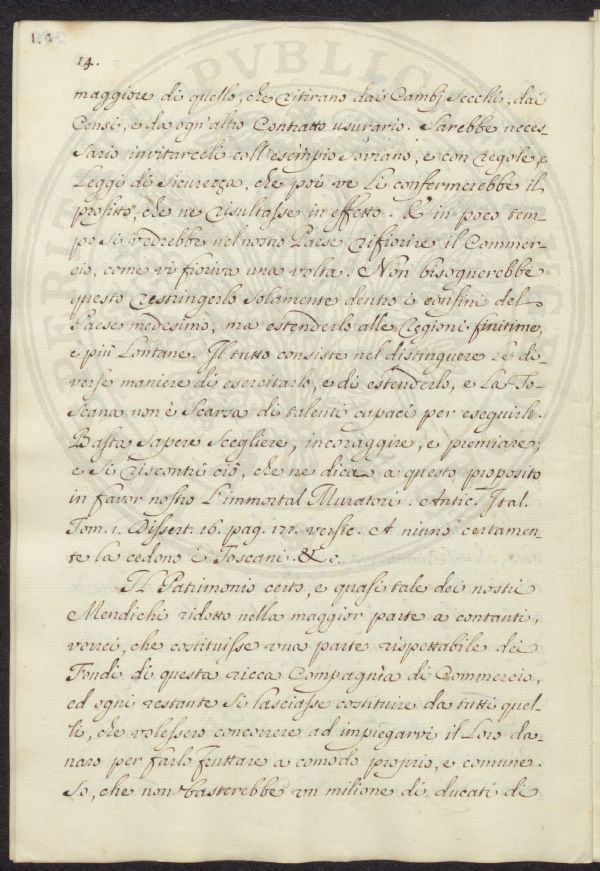 14.
maggiore di quello, che ritirano dai Cambj secchi, dai
Censi, e da ogn'altro Contratto usurario. Sarebbe neces-
sario invitarceli coll'esempio Sovrano, e con regole, e
Leggi di Sicurezza, che poi ve li confermerebbe il
profitto, che ne risultasse in effetto. E in poco tem-
po si vedrebbe nel nostro Paese rifiorire il Commer-
cio, come vi fioriva una volta. Non bisognerebbe
questo restringerlo solamente dentro i confini del
Paese medesimo, ma estenderlo alle regioni finitime,
e più Lontane. Il tutto consiste nel distinguere le di-
verse maniere di esercitarlo, e di estenderlo, e La To-
scana non è Scarsa di talenti capaci per eseguirle.
Basta Sapere Scegliere, incoraggire, e premiare;
e Si riscontri ciò, che ne dica a questo proposito
in favor nostro l'immortal Muratori. Antic. Ital.
Tom. 1. Dissert. 16. pag. 177. verste. A niuno certamen-
te la cedono i Toscani. &c.
Il Patrimonio certo, e quasi tale dei nostri
Mendichi ridotto nella maggior parte a contanti,
vorrei, che costituisse una parte rispettabile dei
Fondi di questa ricca Compagnìa di Commercio,
ed ogni restante Si lasciasse costituire da tutti quel-
li, che volessero concorrere ad impiegarvi il Loro da-
naro per farlo fruttare a comodo proprio, e comune.
So, che non basterebbe un milione di ducati di